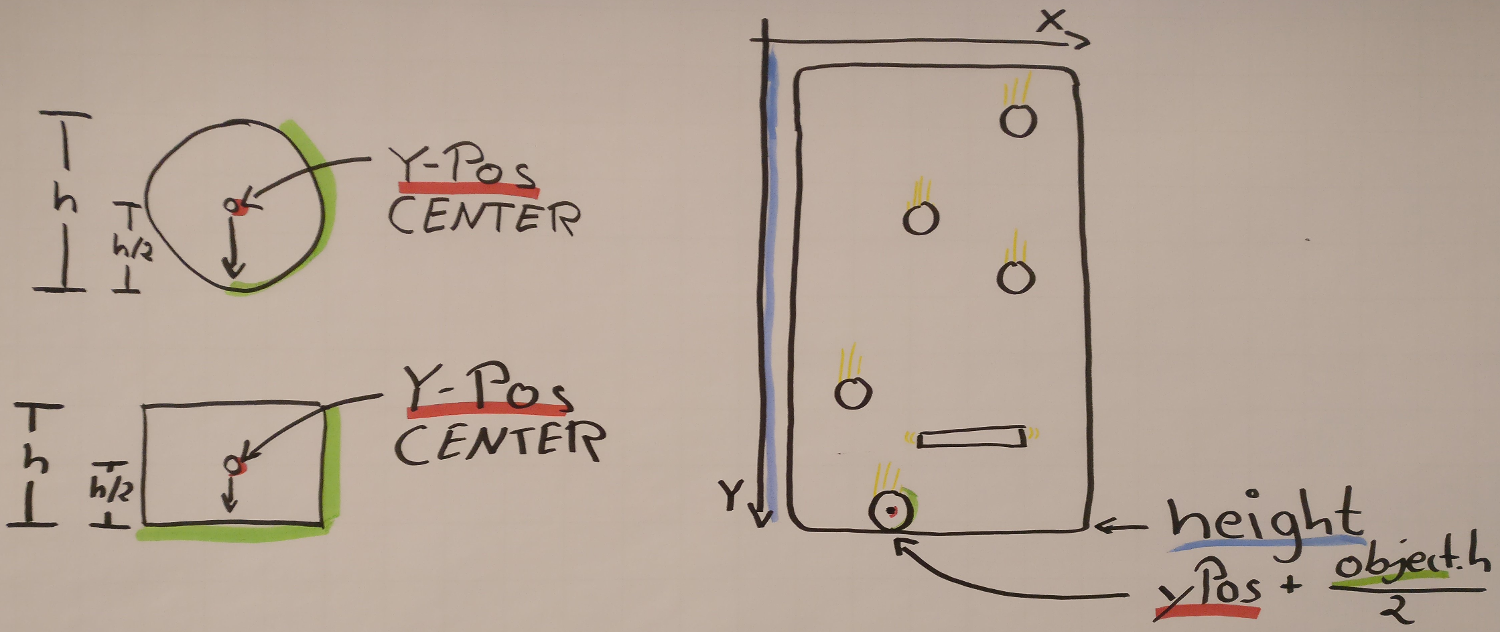 h
h/2
Y-Pos
CENTER
h
h/2
Y-Pos
CENTER
X
Y
height
yPos + object.h
2